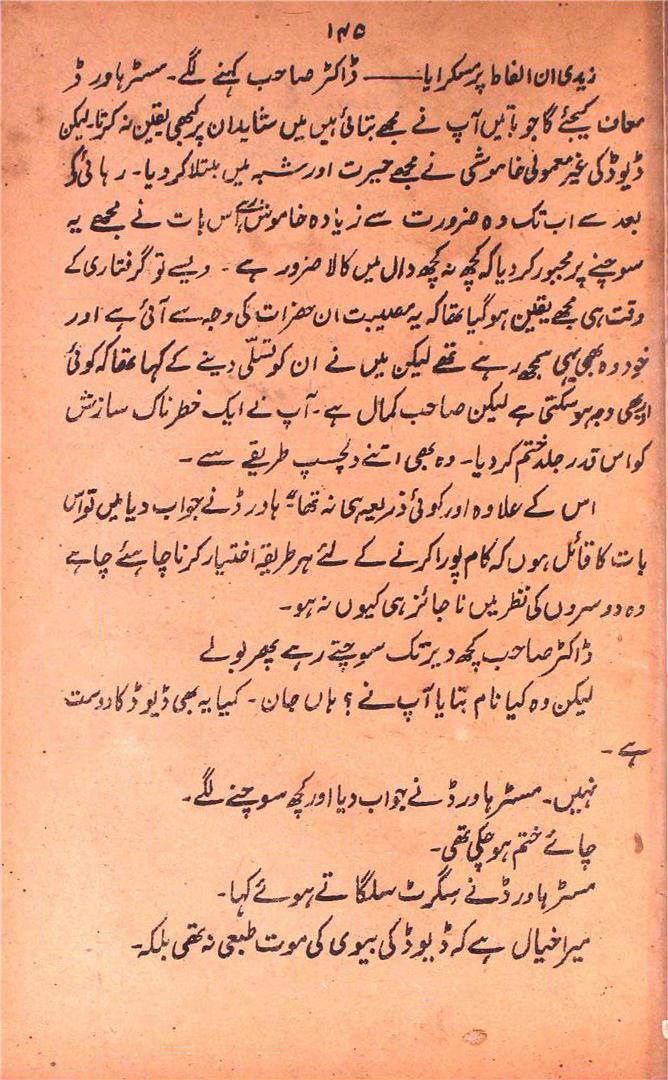 ۱۴۵
زیدی ان الفاظ پر مسکرایا —— ڈاکٹر صاحب کہنے لگے۔ مسٹر ہاورڈ
معاف کیجئے گا جو باتیں آپ نے مجھے بتائی ہیں میں شاید ان پر کبھی یقین نہ کرتا۔ لیکن
ڈیوڈ کی غیر معمولی خاموشی نے مجھے حیرت اور شبہ میں مبتلا کر دیا۔ رہائی کے
بعد سے اب تک وہ ضرورت سے زیادہ خاموش ہے اس بات نے مجھے یہ
سوچنے پر مجبور کر دیا کہ کچھ نہ کچھ دال میں کالا ضرور ہے۔ ویسے تو گرفتاری کے
وقت ہی مجھے یقین ہو گیا تھا کہ یہ مصیبت ان حضرات کی وجہ سے آئی ہے اور
خود وہ بھی یہی سمجھ رہے تھے لیکن میں نے ان کو تسلّی دینے کے کہا تھا کہ کوئی
اور بھی وجہ ہو سکتی ہے لیکن صاحب کمال ہے۔ آپ نے ایک خطرناک سازش
کو اس قدر جلد ختم کر دیا۔ وہ بھی اتنے دلچسپ طریقے سے۔
اس کے علاوہ اور کوئی ذریعہ ہی نہ تھا" ہاورڈ نے جواب دیا میں تو اس
بات کا قائل ہوں کہ کام پورا کرنے کے لئے ہر طریقہ اختیار کرنا چاہئے چاہے
وہ دوسروں کی نظر میں ناجائز ہی کیوں نہ ہو۔
ڈاکٹر صاحب کچھ دیر تک سوچتے رہے پھر بولے
لیکن وہ کیا نام بتایا آپ نے؟ ہاں جان۔ کیا یہ بھی ڈیوڈ کا دوست
ہے۔
نہیں۔ مسٹر ہاورڈ نے جواب دیا اور کچھ سوچنے لگے۔
چائے ختم ہو چکی تھی۔
مسٹر ہاورڈ نے سگرٹ سلگاتے ہوئے کہا۔
میرا خیال ہے کہ ڈیوڈ کی بیوی کی موت طبعی نہ تھی بلکہ۔